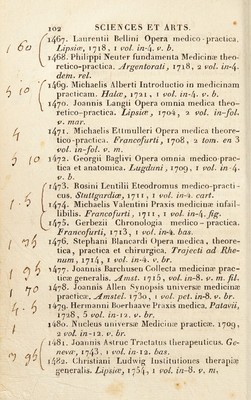 102 SCIENCES ET ARTS.
1467. Laurentii Bellini Opera medico-practica.
160 Lipsiæ, 1718, 1 vol. in-4. v. b.
1468. Philippi Neuter fundamenta Medicinæ theo-
retico-practica. Argentorati, 1718, 2 vol. in-4.
dem. rel.
1469. Michaelis Alberti Introductio in medicinam
practicam. Halæ, 1721, 1 vol. in-4. v. b.
1470. Joannis Langii Opera omnia medica theo-
retico-practica. Lipsiæ, 1704, 2 vol. in-fol.
v. mar.
4 1471. Michaelis Ettmulleri Opera medica theore-
tico-practica. Francofurti, 1708, 2 tom. en 3
vol. in-fol. v. m.
5 10 1472. Georgii Baglivi Opera omnia medico-prac-
tica et anatomica. Lugduni, 1709, 1 vol. in-4.
v. b.
1473. Rosini Lentilii Eteodromus medico-practi-
cus, Stuttgardiæ, 1711, 1 vol. in-4. cart.
1474. Michaelis Valentini Praxis medicinæ infail-
libilis. Francofurti, 1711, 1 vol. in-4. fig.
1475. Gerbezii Chronologia medico-practica.
Francofurti, 1713, 1 vol. in-4. bas.
1476. Stephani Blancardi Opera medica, theore-
tica, practica et chirurgica. Trajecti ad Rhe-
num, 1714, 1 vol. in-4. v. br.
1 95 1477. Joannis Barchusen Collecta medicinæ prac-
ticæ generalis. Amst. 1715, vol. in-8. v. m. fil.
1 70 1478. Joannis Allen Synopsis universæ medicinæ
practicæ, Amstel. 1730, 1 vol. pet. in-8. v. br.
1479. Hermanni Boerhaave Praxis medica, Patavii,
1728, 5 vol. in-12. v. br.
1480. Nucleus universæ Medicinæ practicæ. 1709,
2 vol. in-12. v. br.
1481. Joannis Astruc Tractatus therapenticus. Ge-
nevæ, 1743, 1 vol. in-12. bas.
1482. Christiani Ludwig Institutiones therapiæ
generalis. Lipsiæ, 1754, 1 vol. in-8. v. m.